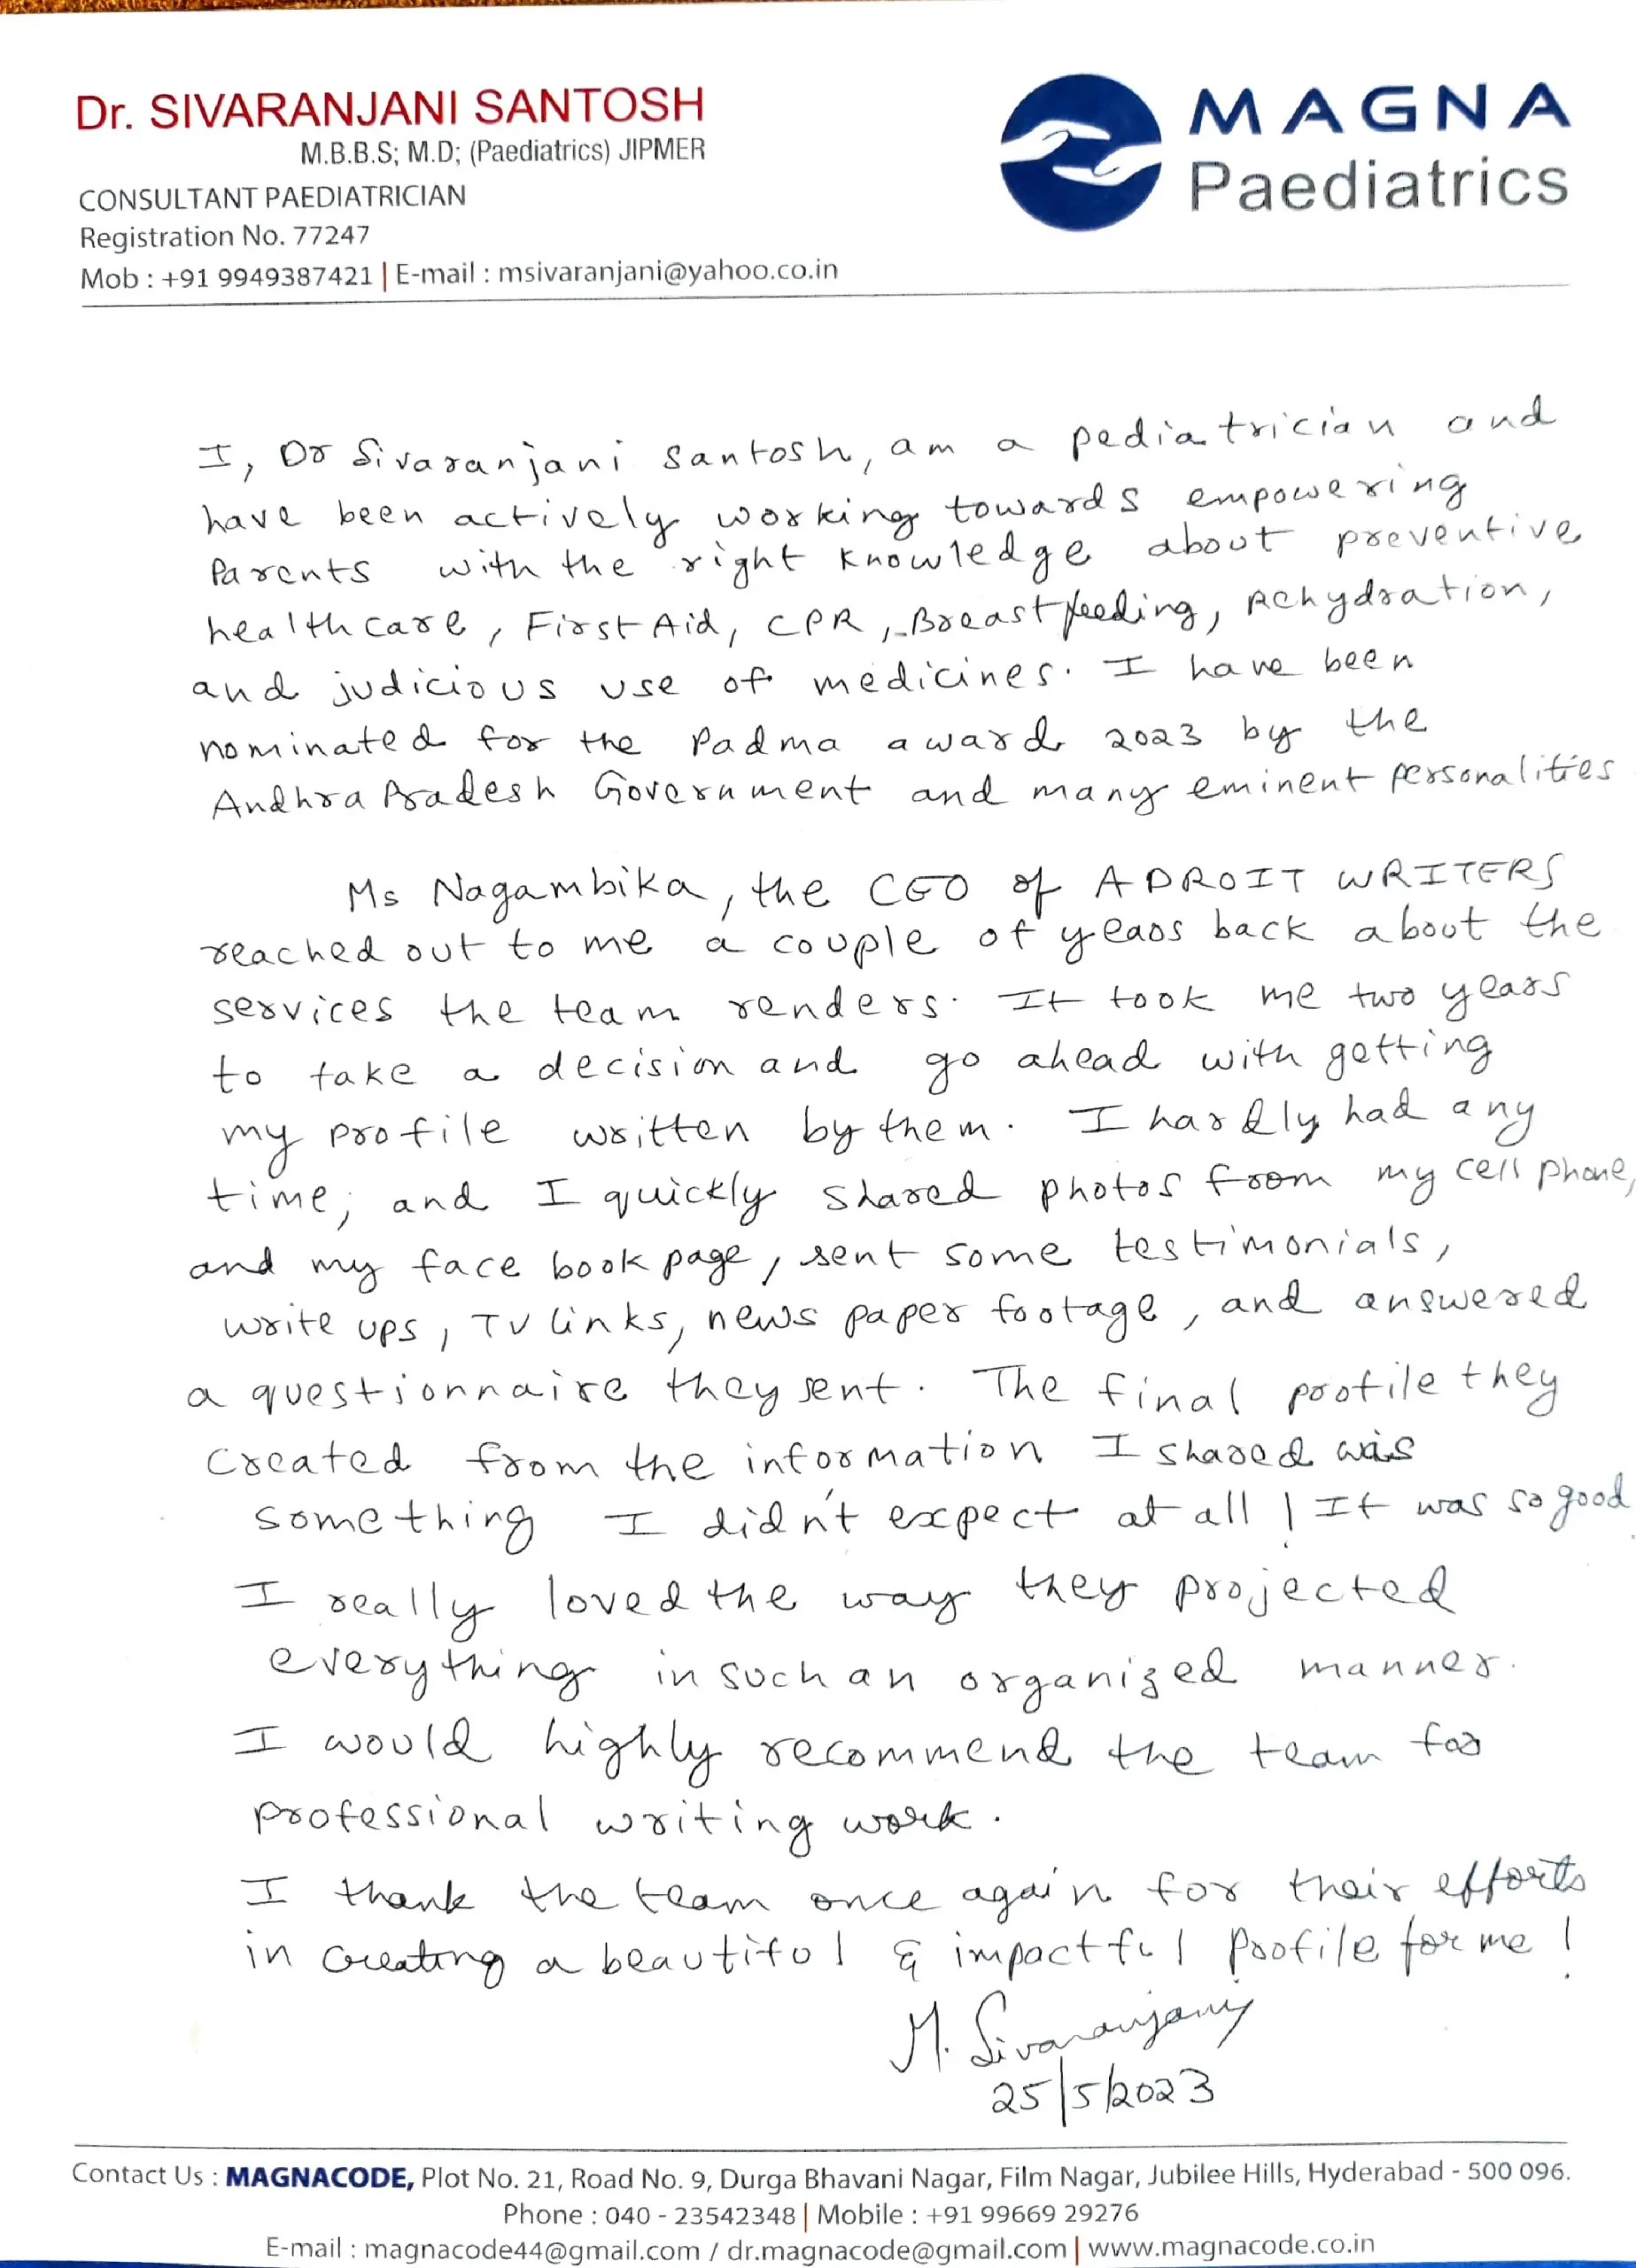 Dr. SIVARANJANI SANTOSH
M.B.B.S; M.D; (Paediatrics) JIPMER
CONSULTANT PAEDIATRICIAN
Registration No. 77247
Mob : +91 9949387421 | E-mail : msivaranjani@yahoo.co.in
MAGNA
Paediatrics
I, Dr Sivaranjani Santosh, am a pediatrician and
have been actively working towards empowering
Parents with the right knowledge about preventive
healthcare, First Aid, CPR, Breastfeeding, Rehydration,
and judicious use of medicines. I have been
nominated for the Padma award 2023 by the
Andhra Pradesh Government and many eminent personalities
Ms Nagambika, the CEO of ADROIT WRITERS
reached out to me a couple of years back about the
services the team renders. It took me two years
to take a decision and go ahead with getting
my profile written by them. I hardly had any
time, and I quickly shared photos from my cell phone,
and my face book page, sent some testimonials,
write ups, TV links, news paper footage, and answered
a questionnaire they sent. The final profile they
created from the information I shared was
something I didn't expect at all! It was so good
I really loved the way they projected
everything in such an organized manner.
I would highly recommend the team for
professional writing work.
I thank the team once again for their efforts
in creating a beautiful & impactful profile for me!
M. Sivaranjani
25/5/2023
Contact Us : MAGNACODE, Plot No. 21, Road No. 9, Durga Bhavani Nagar, Film Nagar, Jubilee Hills, Hyderabad - 500 096.
Phone : 040 - 23542348 | Mobile : +91 99669 29276
E-mail : magnacode44@gmail.com / dr.magnacode@gmail.com | www.magnacode.co.in